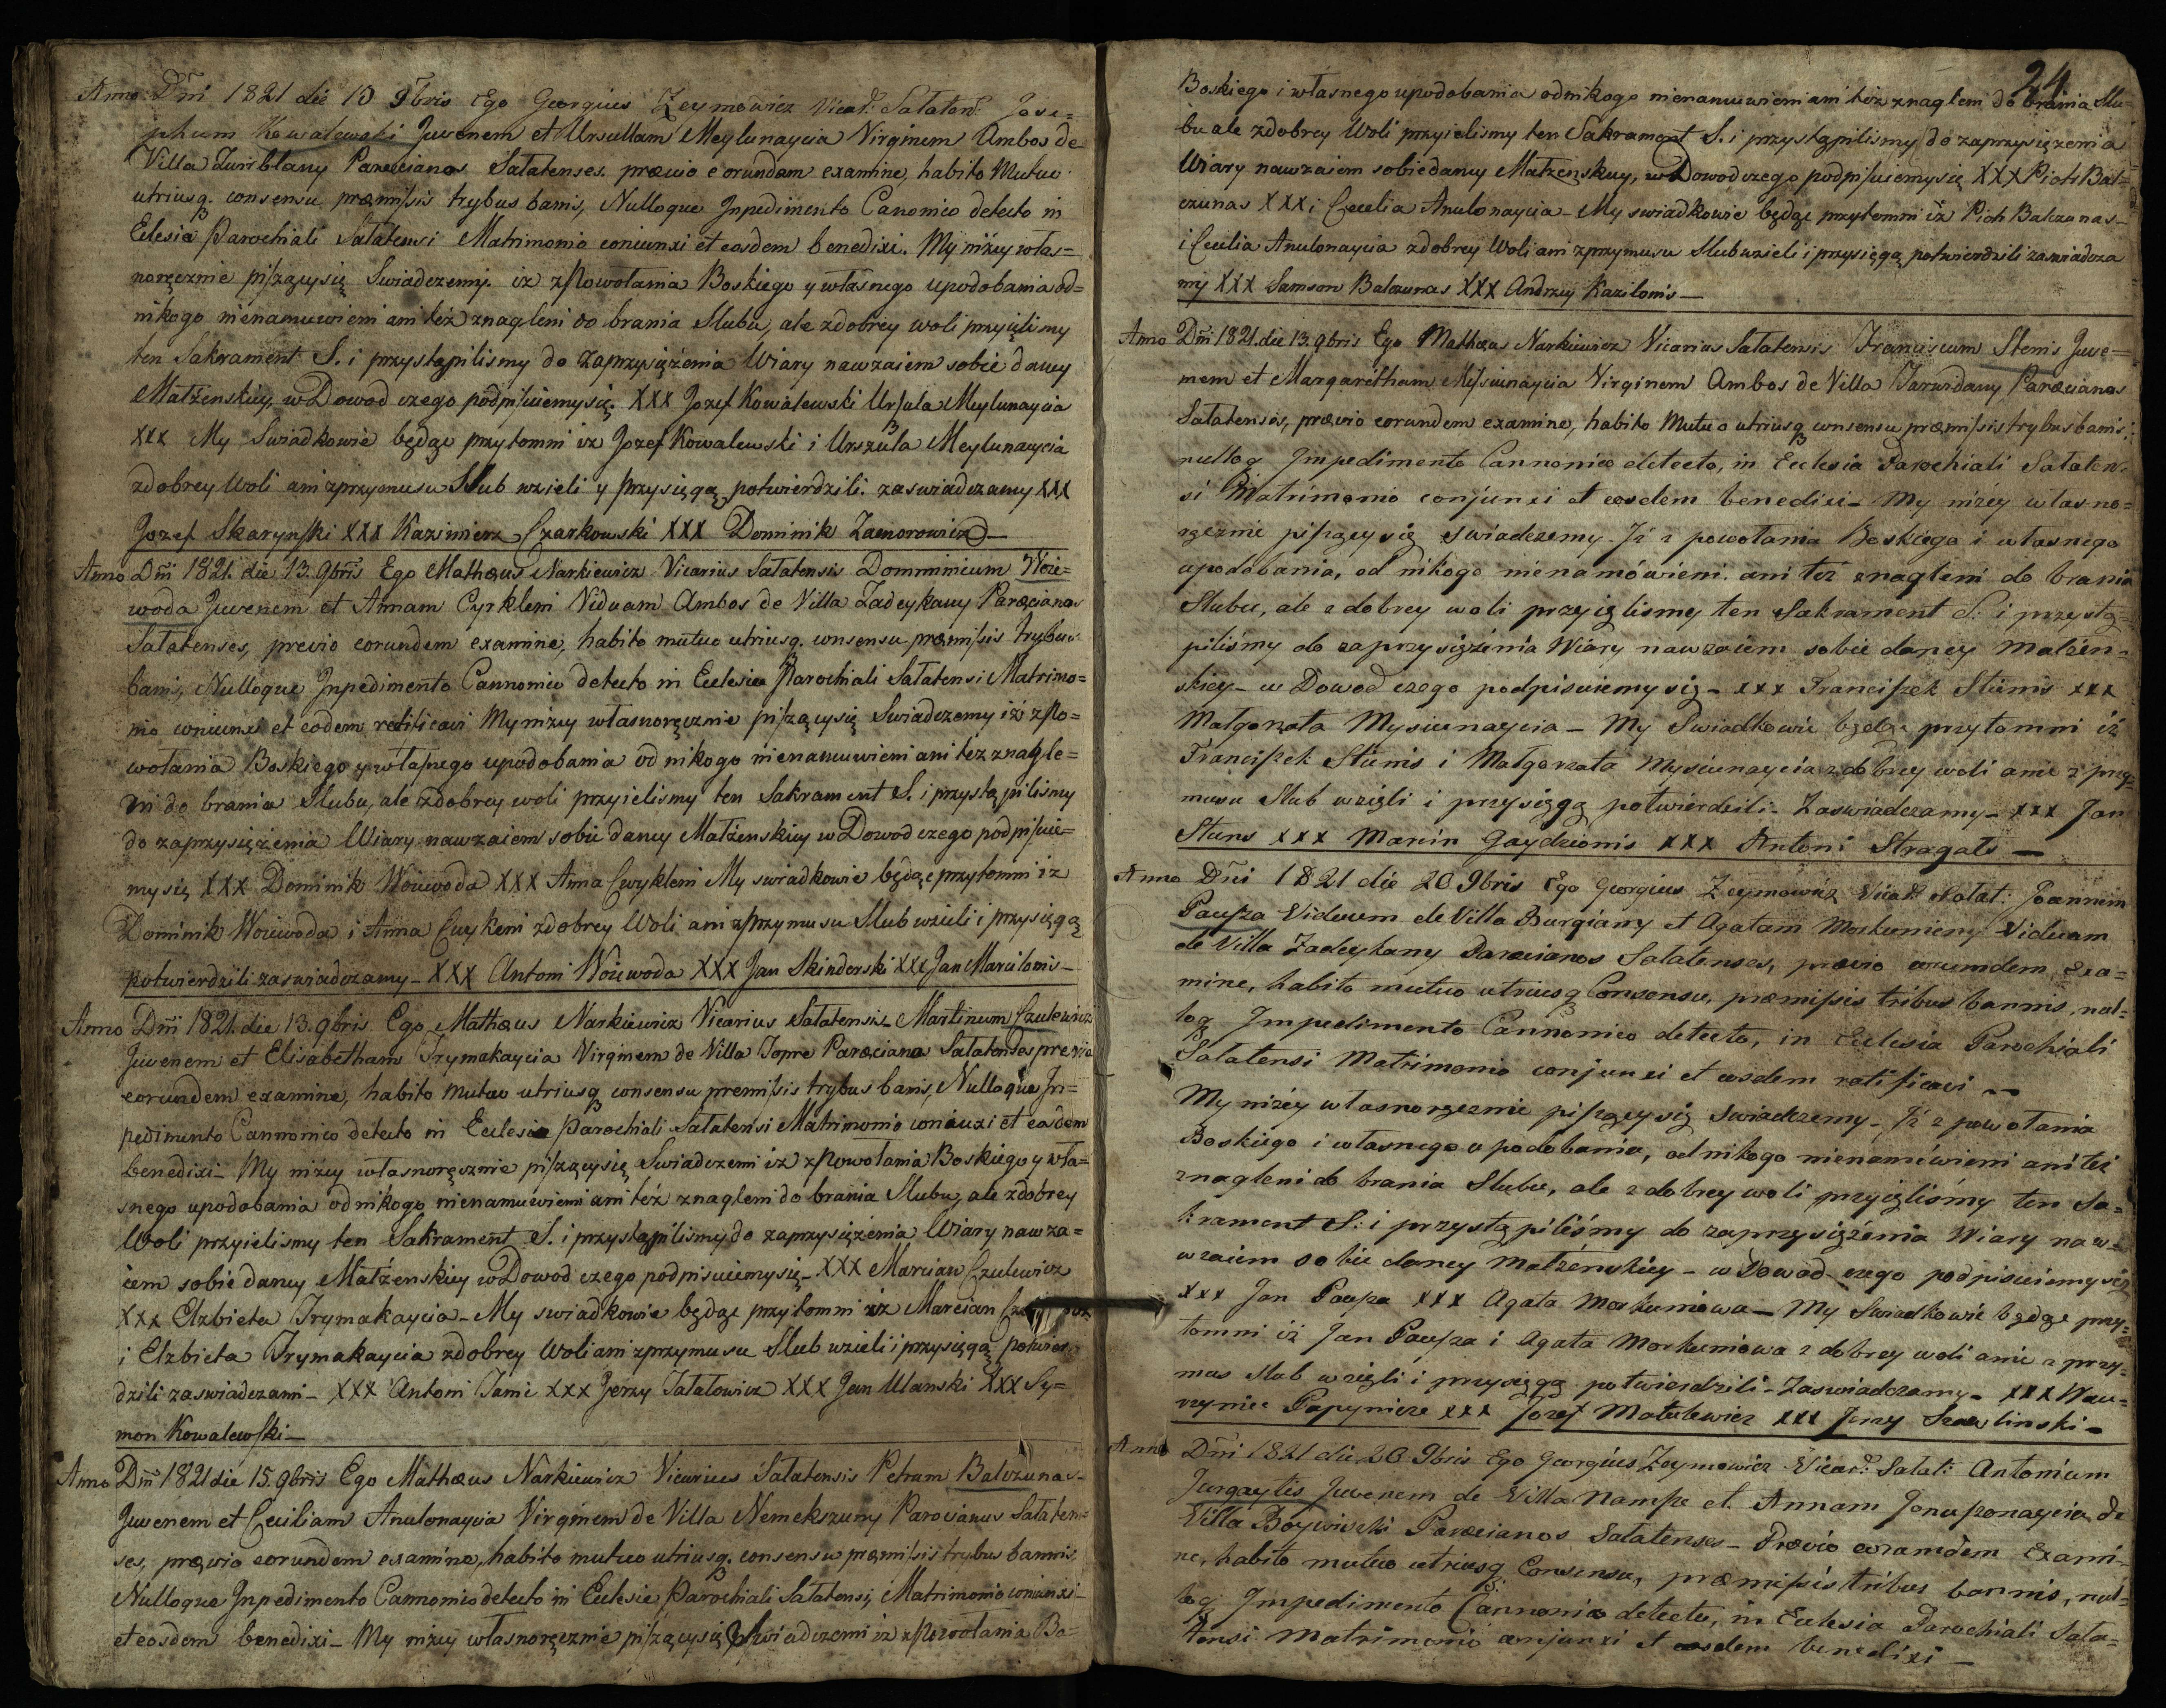 Anno Dni 1821 die 13 9bris Ego Georgius Zeymowicz Vicar: Salaten: Jose=
phum Kowalewski Juvenem et Ursullam Meylunaycia Virginem Ambos de
Villa Parœcianos Salatenses. prœvio eorundem examine, habito Mutuo
utriusq. consensu prœmissis trybus banis, Nulloque Jnpedimento Canonico detecto in
Eclesia Parochiali Salatensi Matrimonio coniunxi et eosdem benedixi. My niżey włas=
noręcznie piszący się Swiadczemy. iż z Powołania Boskiego y własnego upodobania od=
nikogo nienamuwieni ani też znagleni do brania Slubu, ale zdobrey woli przyięlismy
ten Sakrament S. i przystąpilismy do Zaprzysiężenia Wiary nawzaiem sobie daney
Małżenskiey, w Dowod czego podpisuiemy się XXX Jozef Kowalewski Ursula Meylunaycia
XXX My Swiadkowie będąc przytomni iż Jozef Kowalewski i Urszula Meylunaycia
zdobrey Woli ani zprzymusu Slub wzieli y przysięgą potwierdzili. zaswiadczamy XXX
Jozef Skarynski XXX Kazimierz Czarkowski XXX Dominik Zamorowicz—
Anno Dni 1821. die 13. 9bris Ego Mathœus Narkiewicz Vicarius Salatensis Domminicum Woie=
woda Juvenem et Annam Cyrkleni Viduam Ambos de Villa Zadeykany Parœcianos
Salatenses, previo eorundem examine, habito mutuo utriusq. consensu prœmissis trybus
banis, Nulloque Jnpedimento Cannonico detecto in Eclesia Parochiali Salatensi Matrimo=
nio coniunxi et eosdem ratificavi My niżey własnoręcznie piszący się Swiadczemy iż z Po=
wołania Boskiego y własnego upodobania od nikogo nienamuwieni ani też znagle=
ni do brania Slubu, ale zdobrey woli przyielismy ten Sakrament S. i przystąpilismy
do zaprzysiężenia Wiary nawzaiem sobie daney Małżenskiey w Dowod czego podpisuie=
my się XXX Dominik Woiewoda XXX Anna Cwykleni My swiadkowie będąc przytomni iż
Dominik Woiewoda i Anna Cwykleni zdobrey Woli ani zprzymusu Slub wzieli i przysięgą
potwierdzili zaswiadczamy— XXX Antoni Woiewoda XXX Jan Skinderski XXX Jan Marcilonis—
Anno Dni 1821. die 13. 9bris Ego Mathœus Narkiewicz Vicarius Salatensis Martinum Czulewicz
Juvenem et Elisabetham Trymakaycia Virginem de Villa Topre Parœcianos Salatenses previo
eorundem examine, habito mutuo utriusq consensu premissis trybus banis, Nulloque Jn=
pedimento Cannonico detecto in Eclesia Parochiali Salatensi Matrimonio coniunxi et eosdem
benedixi— My niżey własnoręcznie piszący się Swiadczemi iż z Powołania Boskiego y wła=
snego upodobania od nikogo nienamuwieni ani też znagleni do brania Slubu, ale zdobrey
Woli przyielismy ten Sakrament S. i przystąpilismy do zaprzysiężenia Wiary nawza=
iem sobie daney Małżenskiey w Dowod czego podpisuiemy się— XXX Marcian Czulewicz
XXX Elzbieta Trymakaycia— My swiadkowie będąc przytomni iż Marcian
i Elzbieta Trymakaycia zdobrey Woli ani zprzymusu Slub wzieli i przysięgą potwier=
dzili zaswiadczami— XXX Antoni Jami XXX Jerzy Tatatowicz XXX Jan Ulanski XXX Sy=
mon Kowalewski—
Anno Dni 1821 die 15. 9bris Ego Mathœus Narkiewicz Vicarius Salatensis Petrum Balczunas—
Juvenem et Ceciliam Anulonaycia Virginem de Villa Nemekszuny Parocianos Salaten=
ses, prœvio eorundem examine, habito mutuo utriusq. consensu prœmissis trybus bannis
Nulloque Jnpedimento Cannonico detecto in Eclesie Parochiali Salatensi, Matrimonio coniunxi—
et eosdem benedixi— My niżey własnoręcznie piszący się Swiadczemi iż z Powołania Bo=
24
Boskiego i własnego upodobania od nikogo nienamuwieni ani też znagleni do brania Slu=
bu ale zdobrey Woli przyielismy ten Sakrament S. i przystąpilismy do zaprzysiężenia
Wiary nawzaiem sobie daney Małżenskiey, w Dowod czego podpisuiemy się XXX Piotr Bal=
czunas XXX i Cecelia Anulonaycia— My swiadkowie będąc przytomni iż Piotr Balczunas—
i Cecilia Anulonaycia zdobrey Woli ani zprzymusu Slub wzieli i przysięgą potwierdzili zaswiadcza
my XXX Samson Balczunas XXX Andrzey Kazilonis—
Anno Dni 1821. die 13. 9bris Ego Mathœus Narkiewicz Vicarius Salatensis Franciscum Stenis Juve=
nem et Margaretham Mysiunaycia Virginem Ambos de Villa Parœcianos
Salatenses, prœvio eorundem examine, habito Mutuo utriusq consensu prœmissis trybus banis,
nulloq Jmpedimento Cannonico detecto, in Eclesia Parochiali Salaten=
si Matrimonio conjunxi et eosdem benedixi— My niżey własno=
ręcznie piszący się swiadczemy. Jż z powołania Boskiego i własnego
upodobania, od nikogo nienamówieni. ani też znagleni do brania
Slubu, ale z dobrey woli przyięlismy ten Sakrament S: i przystą=
piliśmy do zaprzysiężenia Wiary nawzaiem sobie daney Małżen=
skiey— w Dowod czego podpisuiemy się— xxx Franciszek Stunis xxx
Małgorzata Mysiunaycia— My Swiadkowie będąc przytomni iż
Franciszek Stunis i Małgorzata Mysiunaycia z dobrey woli anie z przy=
musu Slub wzięli i przysięgą potwierdzili— Zaswiadczamy— xxx Jan
Stuns xxx Marcin Gaydzionis xxx Antoni Stragats—
Anno Dni 1821 die 20 9bris Ego Georgius Zeymowicz Vicar: Salat: Joannem
Paupza Viduum de Villa Burgiany et Agatam Morkunieny Viduam
de Villa Zadeykany Parœcianos Salatenses, prœvio eorumdem Exa=
mine, habito mutuo utriusq Consensu, prœmissis tribus bannis, nul=
loq Jmpedimento Cannonico detecto, in Eclesia Parochiali
Salatensi Matrimonio conjunxi et eosdem ratificavi—
My niżey własnoręcznie piszący się swiadczemy— Jż z powołania
Boskiego i własnego upodobania, od nikogo nienamówieni ani też
znagleni do brania Slubu, ale z dobrey woli przyięliśmy ten Sa=
krament S: i przystąpiliśmy do zaprzysiężenia Wiary naw=
wzaiem sobie daney Małżenskiey— w Dowod czego podpisuiemy się
xxx Jan Paupza xxx Agata Morkuniowa— My Swiadkowie będąc przy=
tomni iż Jan Paupza i Agata Morkuniowa z dobrey woli anie z przy=
mus slub wzięli i przysięgą potwierdzili— Zaswiadczamy— xxx Waw=
rzyniec xxx Jozef Matulewicz xxx Jerzy Szawlinski—
Anno Dni 1821 die 20 9bris Ego Georgius Zeymowicz Vicar: Salat: Antonium
Jurgaytis Juvenem de Villa Nampze et Annam Jonuszonaycia de
Villa Parœcianos Salatenses— Prœvio eorumdem Exami=
ne, habito mutuo utriusq Consensu, prœmissis tribus bannis, nul=
loq Jmpedimento Cannonico detecto, in Eclesia Parochiali Sala=
tensi Matrimonio conjunxi et eosdem benedixi—